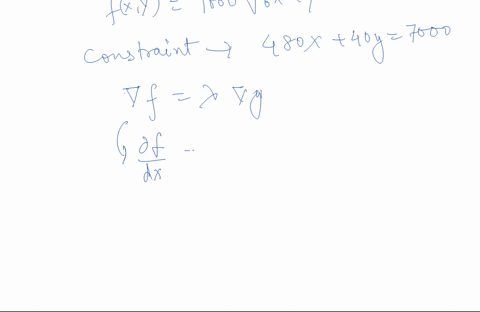 f(x,y) = 1000
constraint → 480x + 40y = 7000
∇f = λ ∇g
∂f/dx -